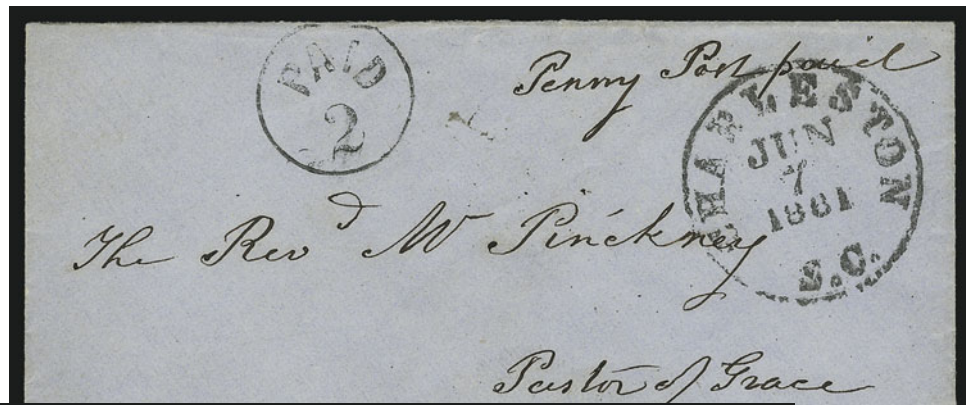 PAID
2
Penny Post paid
CHARLESTON
JUN
7
1861
S.C.
The Revd Mr Pinckney
Pastor of Grace